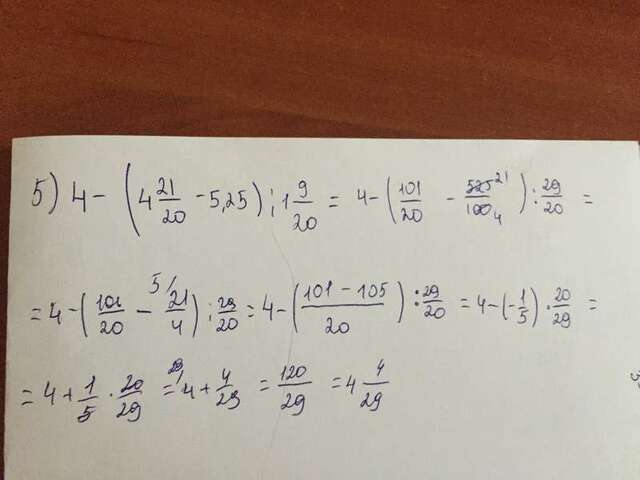 5) 4 - (4 21/20 - 5,25) : 1 9/20 = 4 - (101/20 - 525²¹/100₄) : 29/20 =
= 4 - (101/20 - ⁵⁄21/4) : 29/20 = 4 - (101 - 105/20) : 29/20 = 4 - (-1/5) · 20/29 =
= 4 + 1/5 · 20/29 = ²⁹⁄4 + 4/29 = 120/29 = 4 4/29